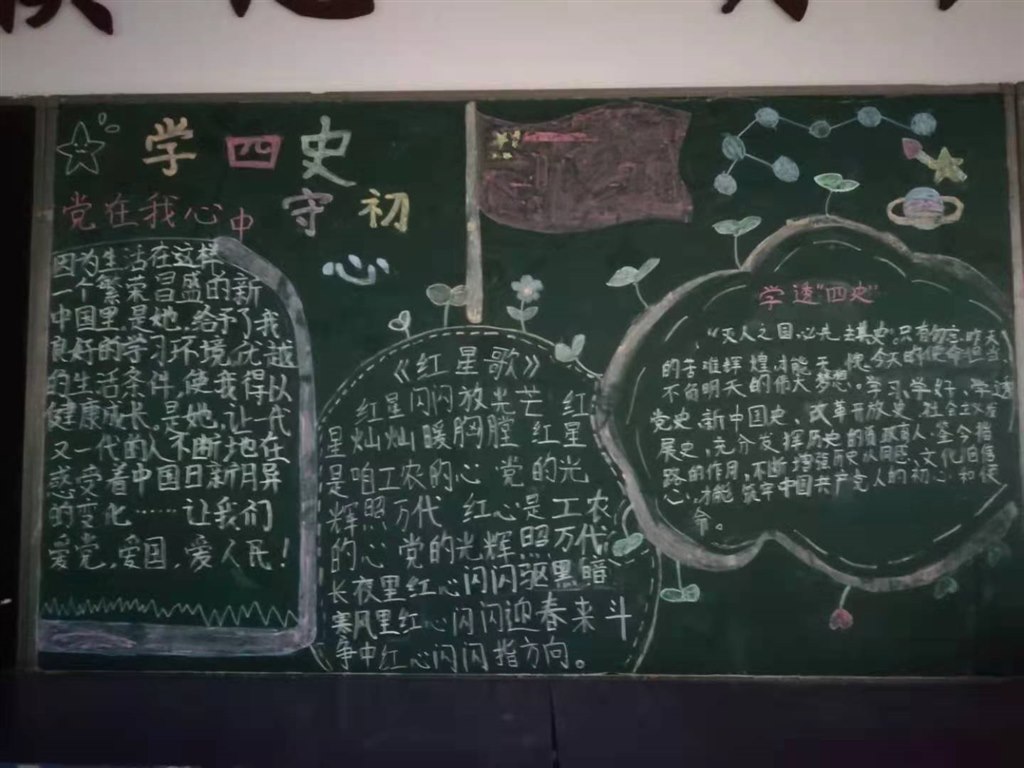 学四史
守初
心
党在我心中
因为生活在这样
一个繁荣昌盛的新
中国里,是她,给予了我
良好的学习环境,优越
的生活条件,使我得以
健康成长,是她,让一代
又一代的人不断地在
感受着中国日新月异
的变化……让我们
爱党,爱国,爱人民!
《红星歌》
红星闪闪放光芒 红
星灿灿暖胸膛 红星
是咱工农的心 党的光
辉照万代 红心是工农
的心 党的光辉照万代
长夜里红心闪闪驱黑暗
寒风里红心闪闪迎春来斗
争中红心闪闪指方向。
学透"四史"
"灭人之国,必先去其史"只有勿忘昨天
的苦难辉煌,才能无愧今天的使命担当,
不负明天的伟大梦想。学习,学好,学透
党史,新中国史,改革开放史,社会主义发
展史,充分发挥历史的资政育人,鉴今指
路的作用,不断增强历史认同感,文化自信
心,才能筑牢中国共产党人的初心和使
命。